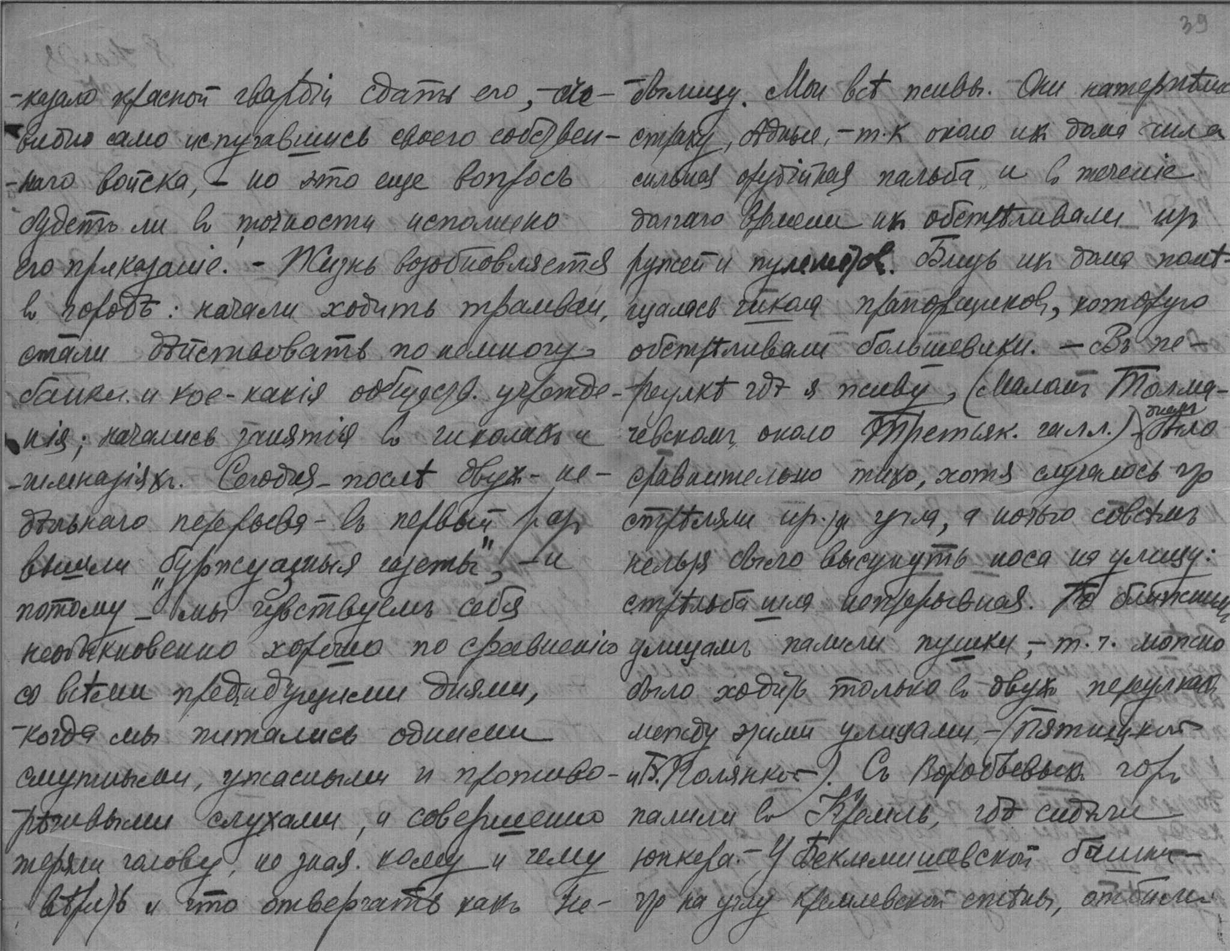 39
-казало красной гвардіи сдать его, - оче-
видно само испугавшись своего собствен-
-наго войска, - но это еще вопросъ
будетъ ли въ точности исполнено
его приказаніе. - Жизнь возобновляется
въ городѣ: начали ходить трамваи,
стали дѣйствовать по немногу
банки и кое-какія обществ. учрежде-
нія; начались занятія въ школахъ и
-гимназіяхъ. Сегодня - послѣ двух-не-
дѣльнаго перерыва - въ первый разъ
вышли "буржуазныя газеты", - и
потому - мы чувствуемъ себя
необыкновенно хорошо по сравненію
со всѣми предидущими днями,
-когда мы питались одними
смутными, ужасными и противо-
рѣчивыми слухами, и совершенно
теряли голову, не зная кому и чему
вѣрить и что отвергать какъ не-
-былицу. Мои всѣ живы. Они натерпѣлись
страху, бѣдные, - т.к около ихъ дома шла
сильная орудійная пальба и въ теченіе
долгаго времени их обстрѣливали изъ
ружей и пулеметов. Близь ихъ дома помѣ-
щалась школа прапорщиков, которую
обстрѣливали большевики. - Въ пе-
-реулкѣ гдѣ я живу, (Маломъ Толма-
чевскомъ, около Третьяк. галл.) днемъ было
сравнительно тихо, хотя случалось что
стрѣляли из-за угла, а ночью совсѣмъ
нельзя было высунуть носа на улицу:
стрѣльба шла непрерывная. По ближнимъ
улицамъ палили пушки, - т. ч. можно
было ходить только въ двухъ переулкахъ
между этими улицами, - (Пятницкой
и Б. Полянкой). Съ Воробьевыхъ горъ
палили въ Кремль, гдѣ сидѣли
юнкера. - У Беклемишевской башни -
что на углу Кремлевской стѣны, отбили